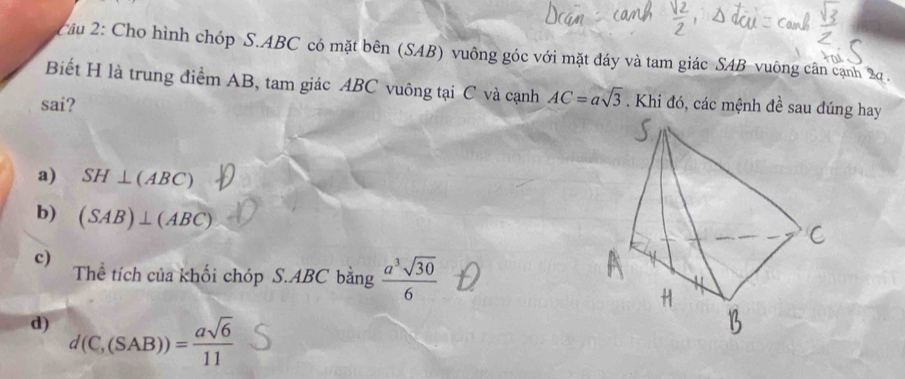 Dcân = canh √2/2, Δ đều = canh √3/2
Câu 2: Cho hình chóp S.ABC có mặt bên (SAB) vuông góc với mặt đáy và tam giác SAB vuông cân cạnh 2a.
tại S
Biết H là trung điểm AB, tam giác ABC vuông tại C và cạnh AC = a√3. Khi đó, các mệnh đề sau đúng hay
sai?
a) SH ⊥ (ABC) Đ
b) (SAB) ⊥ (ABC) Đ
c) Thể tích của khối chóp S.ABC bằng a³√30/6 Đ
d) d(C,(SAB)) = a√6/11 S
S
A
C
H
B